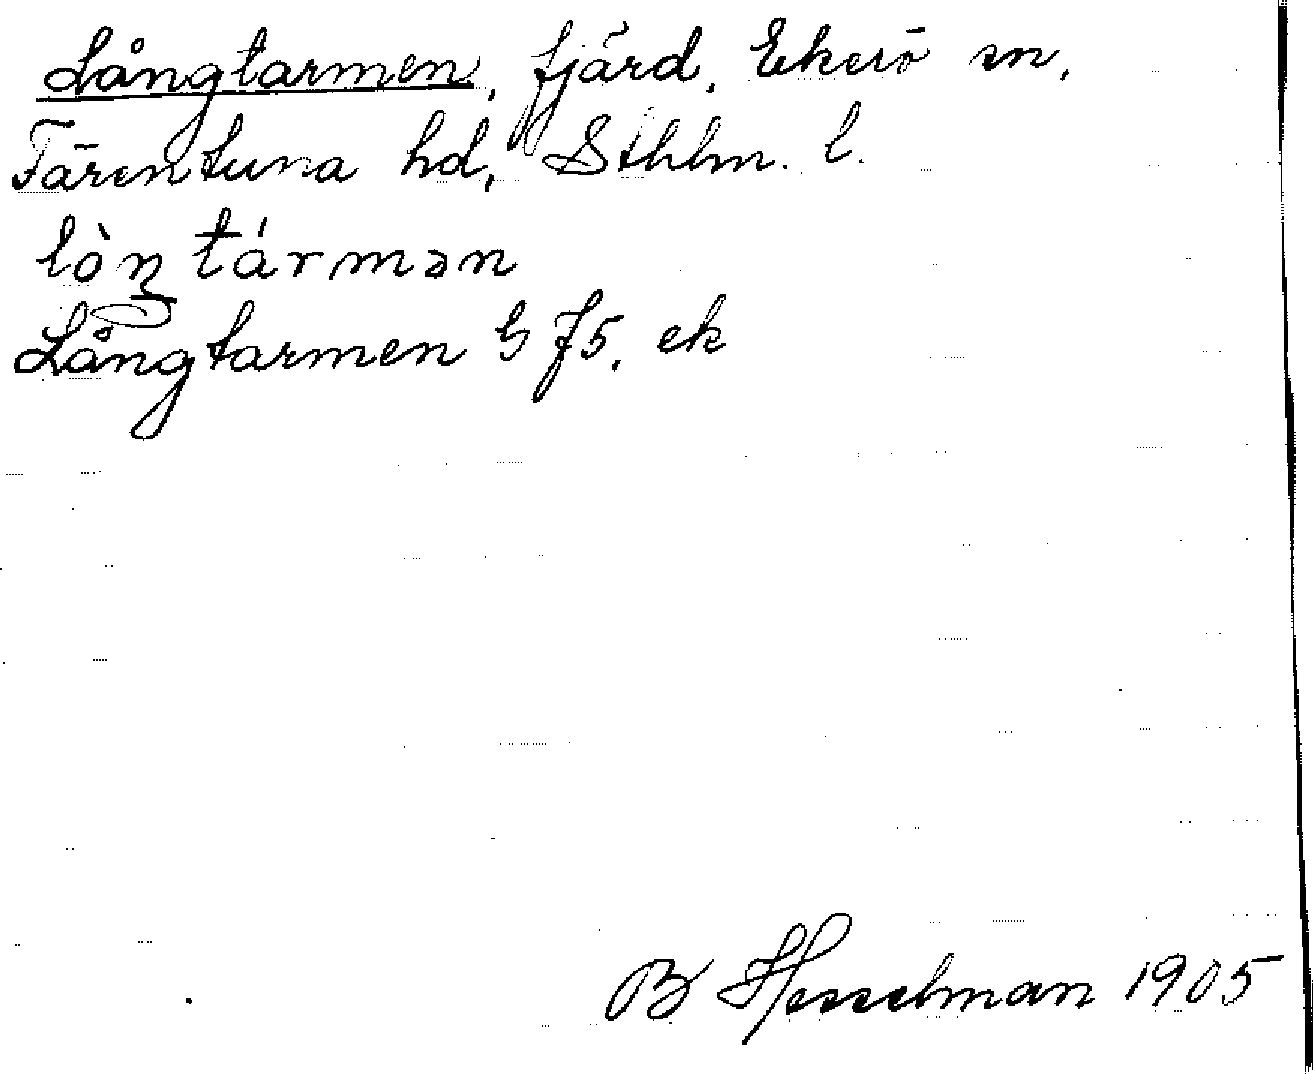 Långtarmen, fjärd, Ekerö sn,
Färentuna hd, Sthlm. l.
lòŋtármən
Långtarmen G f5, ek
B Hesselman 1905